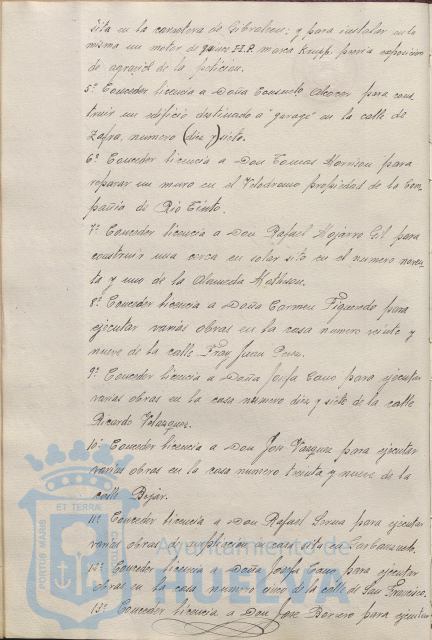 sita en la carretera de Gibraleon; y para instalar en la
misma un motor de quince H.P. marca Krupp, previa exposición
de agrasid de la peticion.
5º Conceder licencia a Doña Consuelo Alcocer para cons
truir un edificio destinado a "garage" en la calle de
Zafra, numero (diez y) siete.
6º Conceder licencia a Don Tomas Morrison para
reparar un muro en el Velodromo propiedad de la Com-
pañia de Rio Tinto.
7º Conceder licencia a Don Rafael Mojarro Gil para
construir una cerca en solar sito en el numero noven-
ta y uno de la Alameda Matheson.
8º Conceder licencia a Doña Carmen Figueredo para
ejecutar varias obras en la casa numero veinte y
nueve de la calle Fray Juan Perez.
9º Conceder licencia a Doña Josefa Cano para ejecutar
varias obras en la casa numero diez y siete de la calle
Ricardo Velazquez.
10º Conceder licencia a Don José Vazquez para ejecutar
varias obras en la casa numero treinta y nueve de la
calle Bejar.
11º Conceder licencia a Don Rafael Serna para ejecutar
varias obras de ampliacion casa sita en Carbonuelo.
12º Conceder licencia a Doña Josefa Cano para ejecutar
obras en la casa numero cinco de la calle de San Francisco.
13º Conceder licencia a Don José Borrero para ejecutar
PORTUS MARIS ET TERRAE
Ayuntamiento de
HUELVA